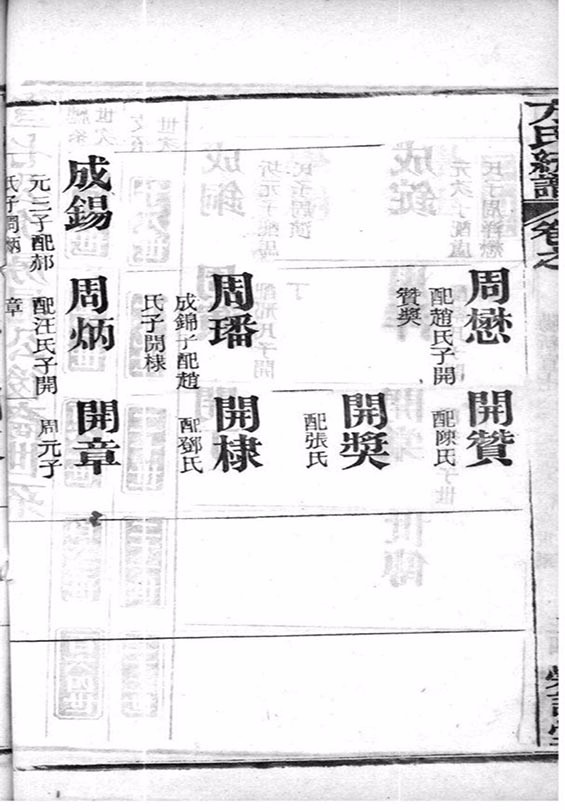 方氏統譜
卷之
周懋
配趙氏子開
贊獎
開贊
配陳氏
開獎
配張氏
周璠
成錦子配趙
氏子開棣
開棣
配鄧氏
成錫
元三子配郝
氏子周炳
周炳
配汪氏子開
章
開章
周元子